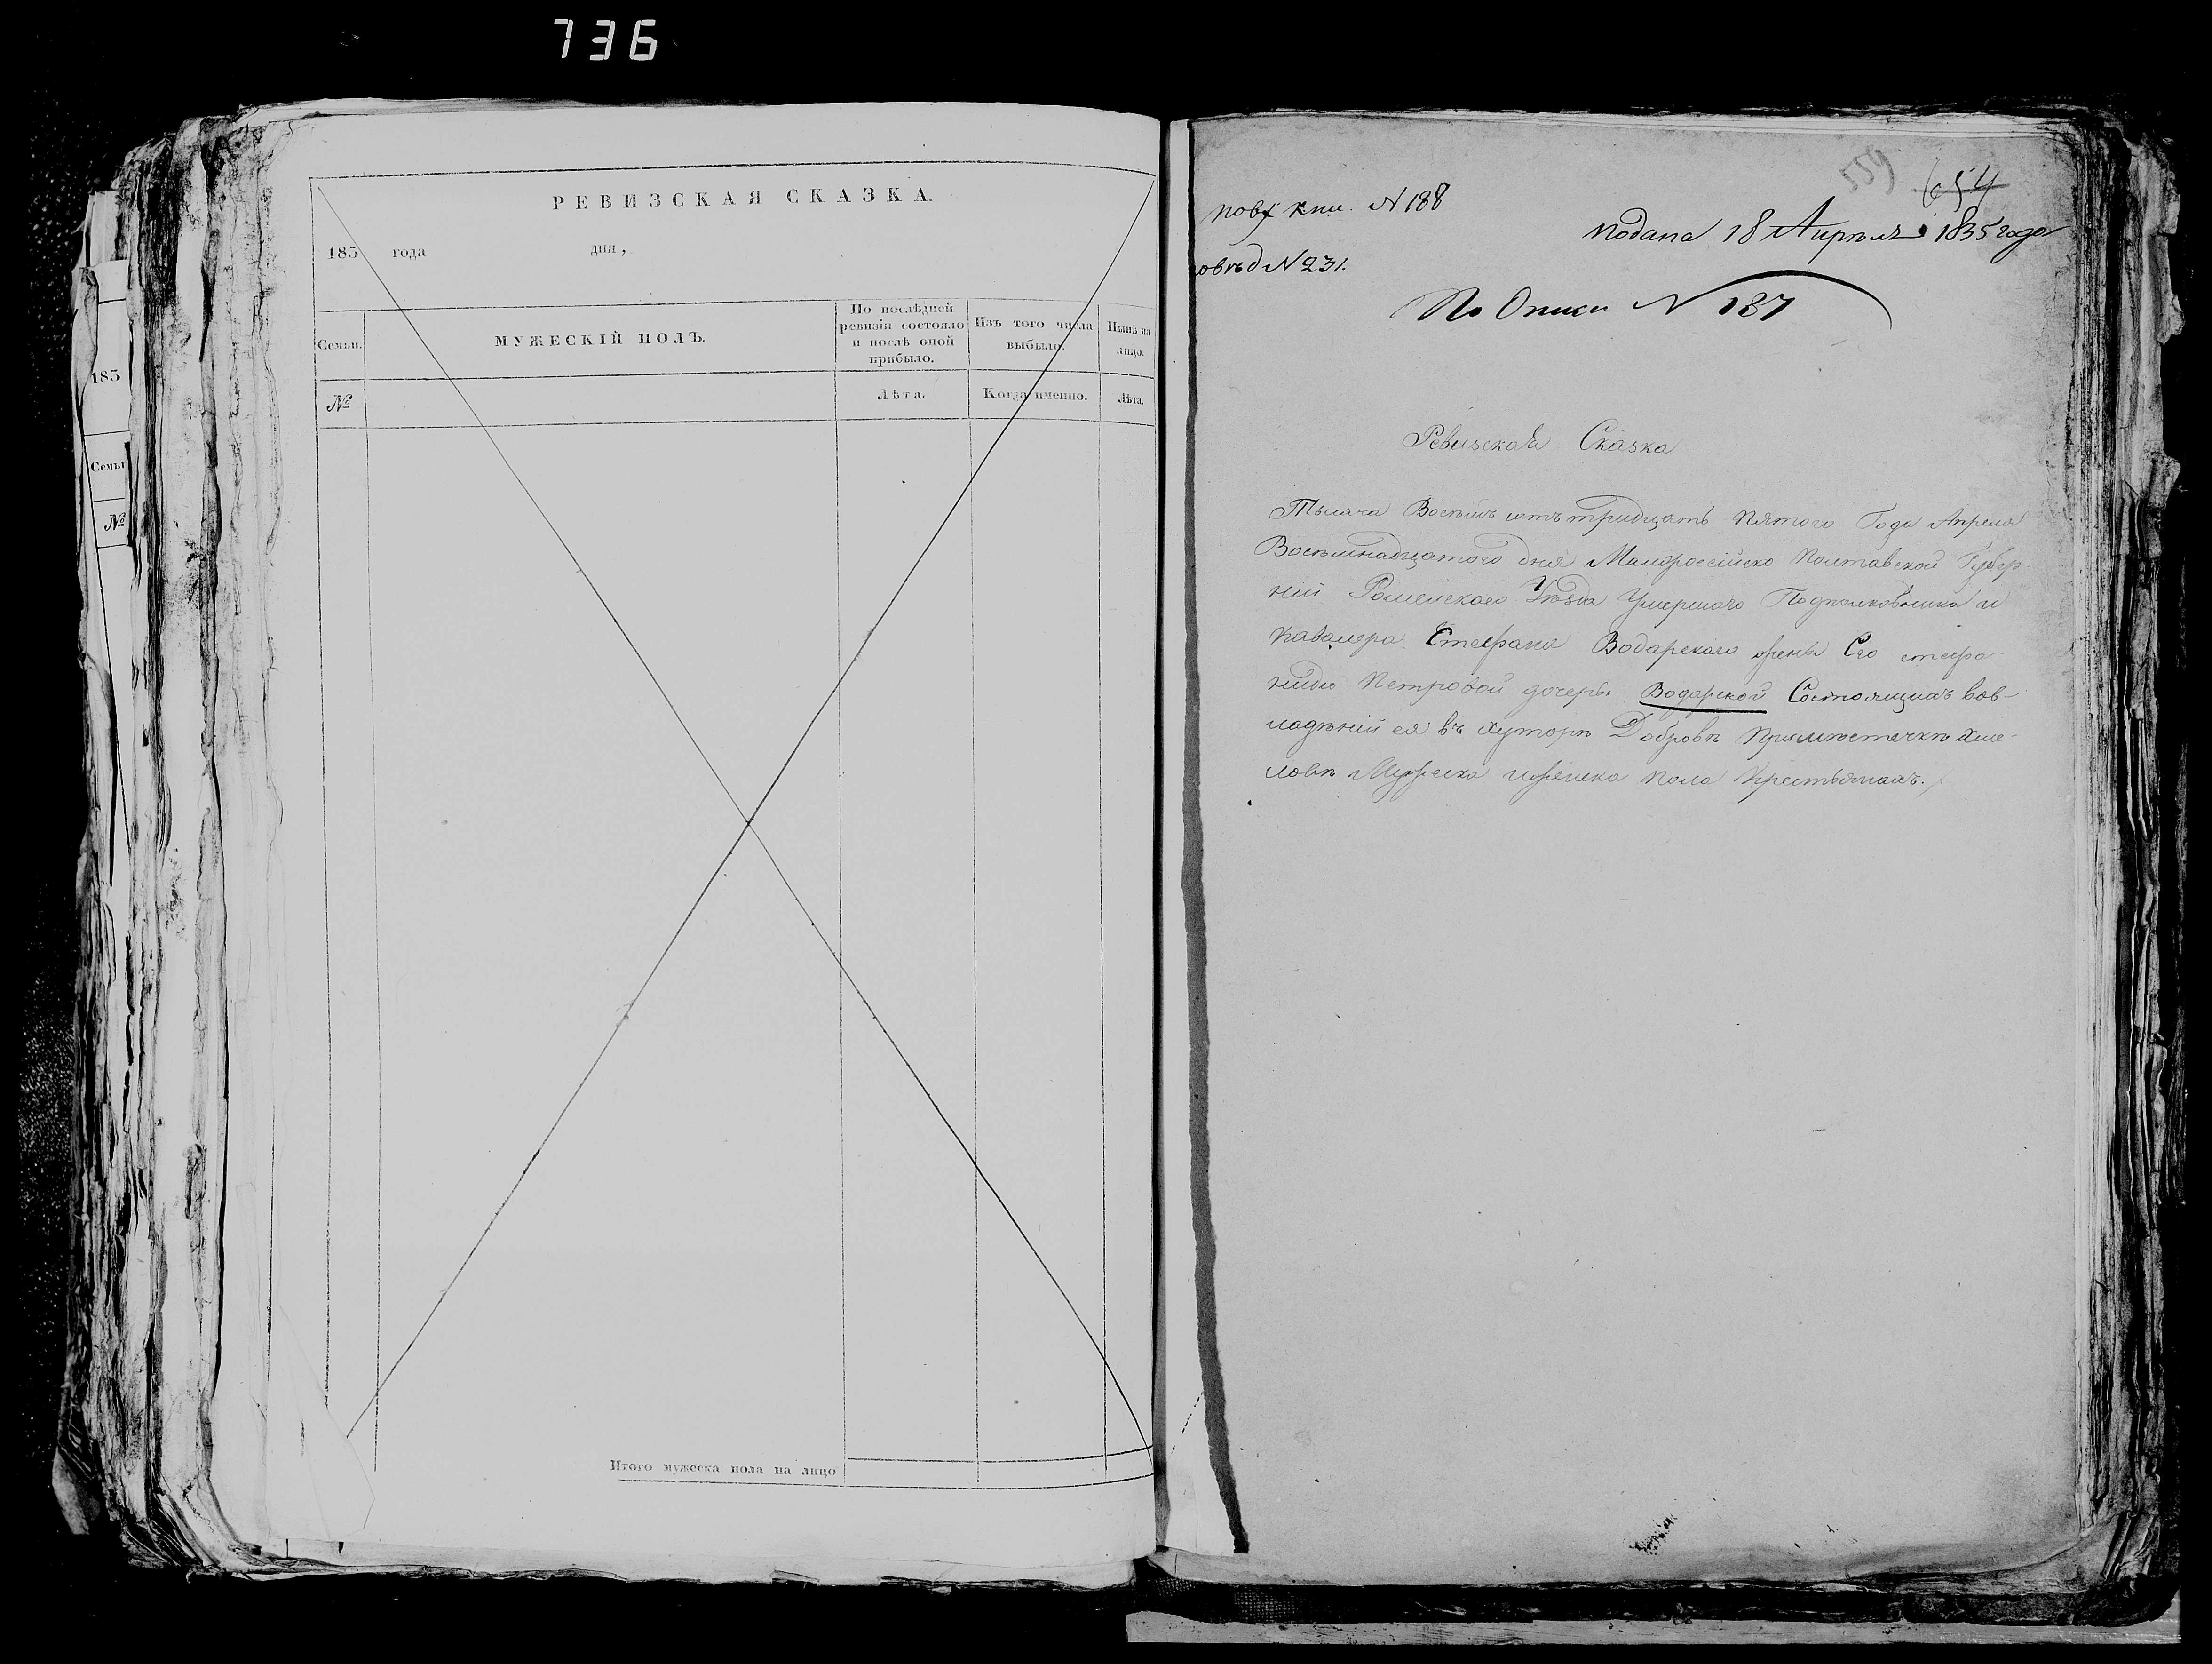 736
РЕВИЗСКАЯ СКАЗКА.
183 года дня,
Семьи.
МУЖЕСКІЙ ПОЛЪ.
По послѣдней ревизіи состояло и послѣ оной прибыло.
Изъ того числа выбыло.
Нынѣ на лицо.
№
Лѣта.
Когда именно.
Лѣта.
Итого мужеска пола на лицо
183
Семьи
№
559
654
кни. N 188
подана 18 Апреля 1835 года
N 231.
По Описи N 187
Ревизская Сказка
Тысяча Восемь сотъ тридцать Пятого Года Апреля
Восемнадцатого дня Малоросійско Полтавской Губер-
ніи Роменскаго Уѣзда Умершаго Подполковника и
Кавалера Стефана Водарскаго жены Его стефа
ниды Петровой дочери Водарской Состоящихъ вов-
ладѣніи ея въ хуторѣ Добровѣ Примѣстечкѣ Хме-
ловѣ Мужеска иженска пола Крестьянахъ.